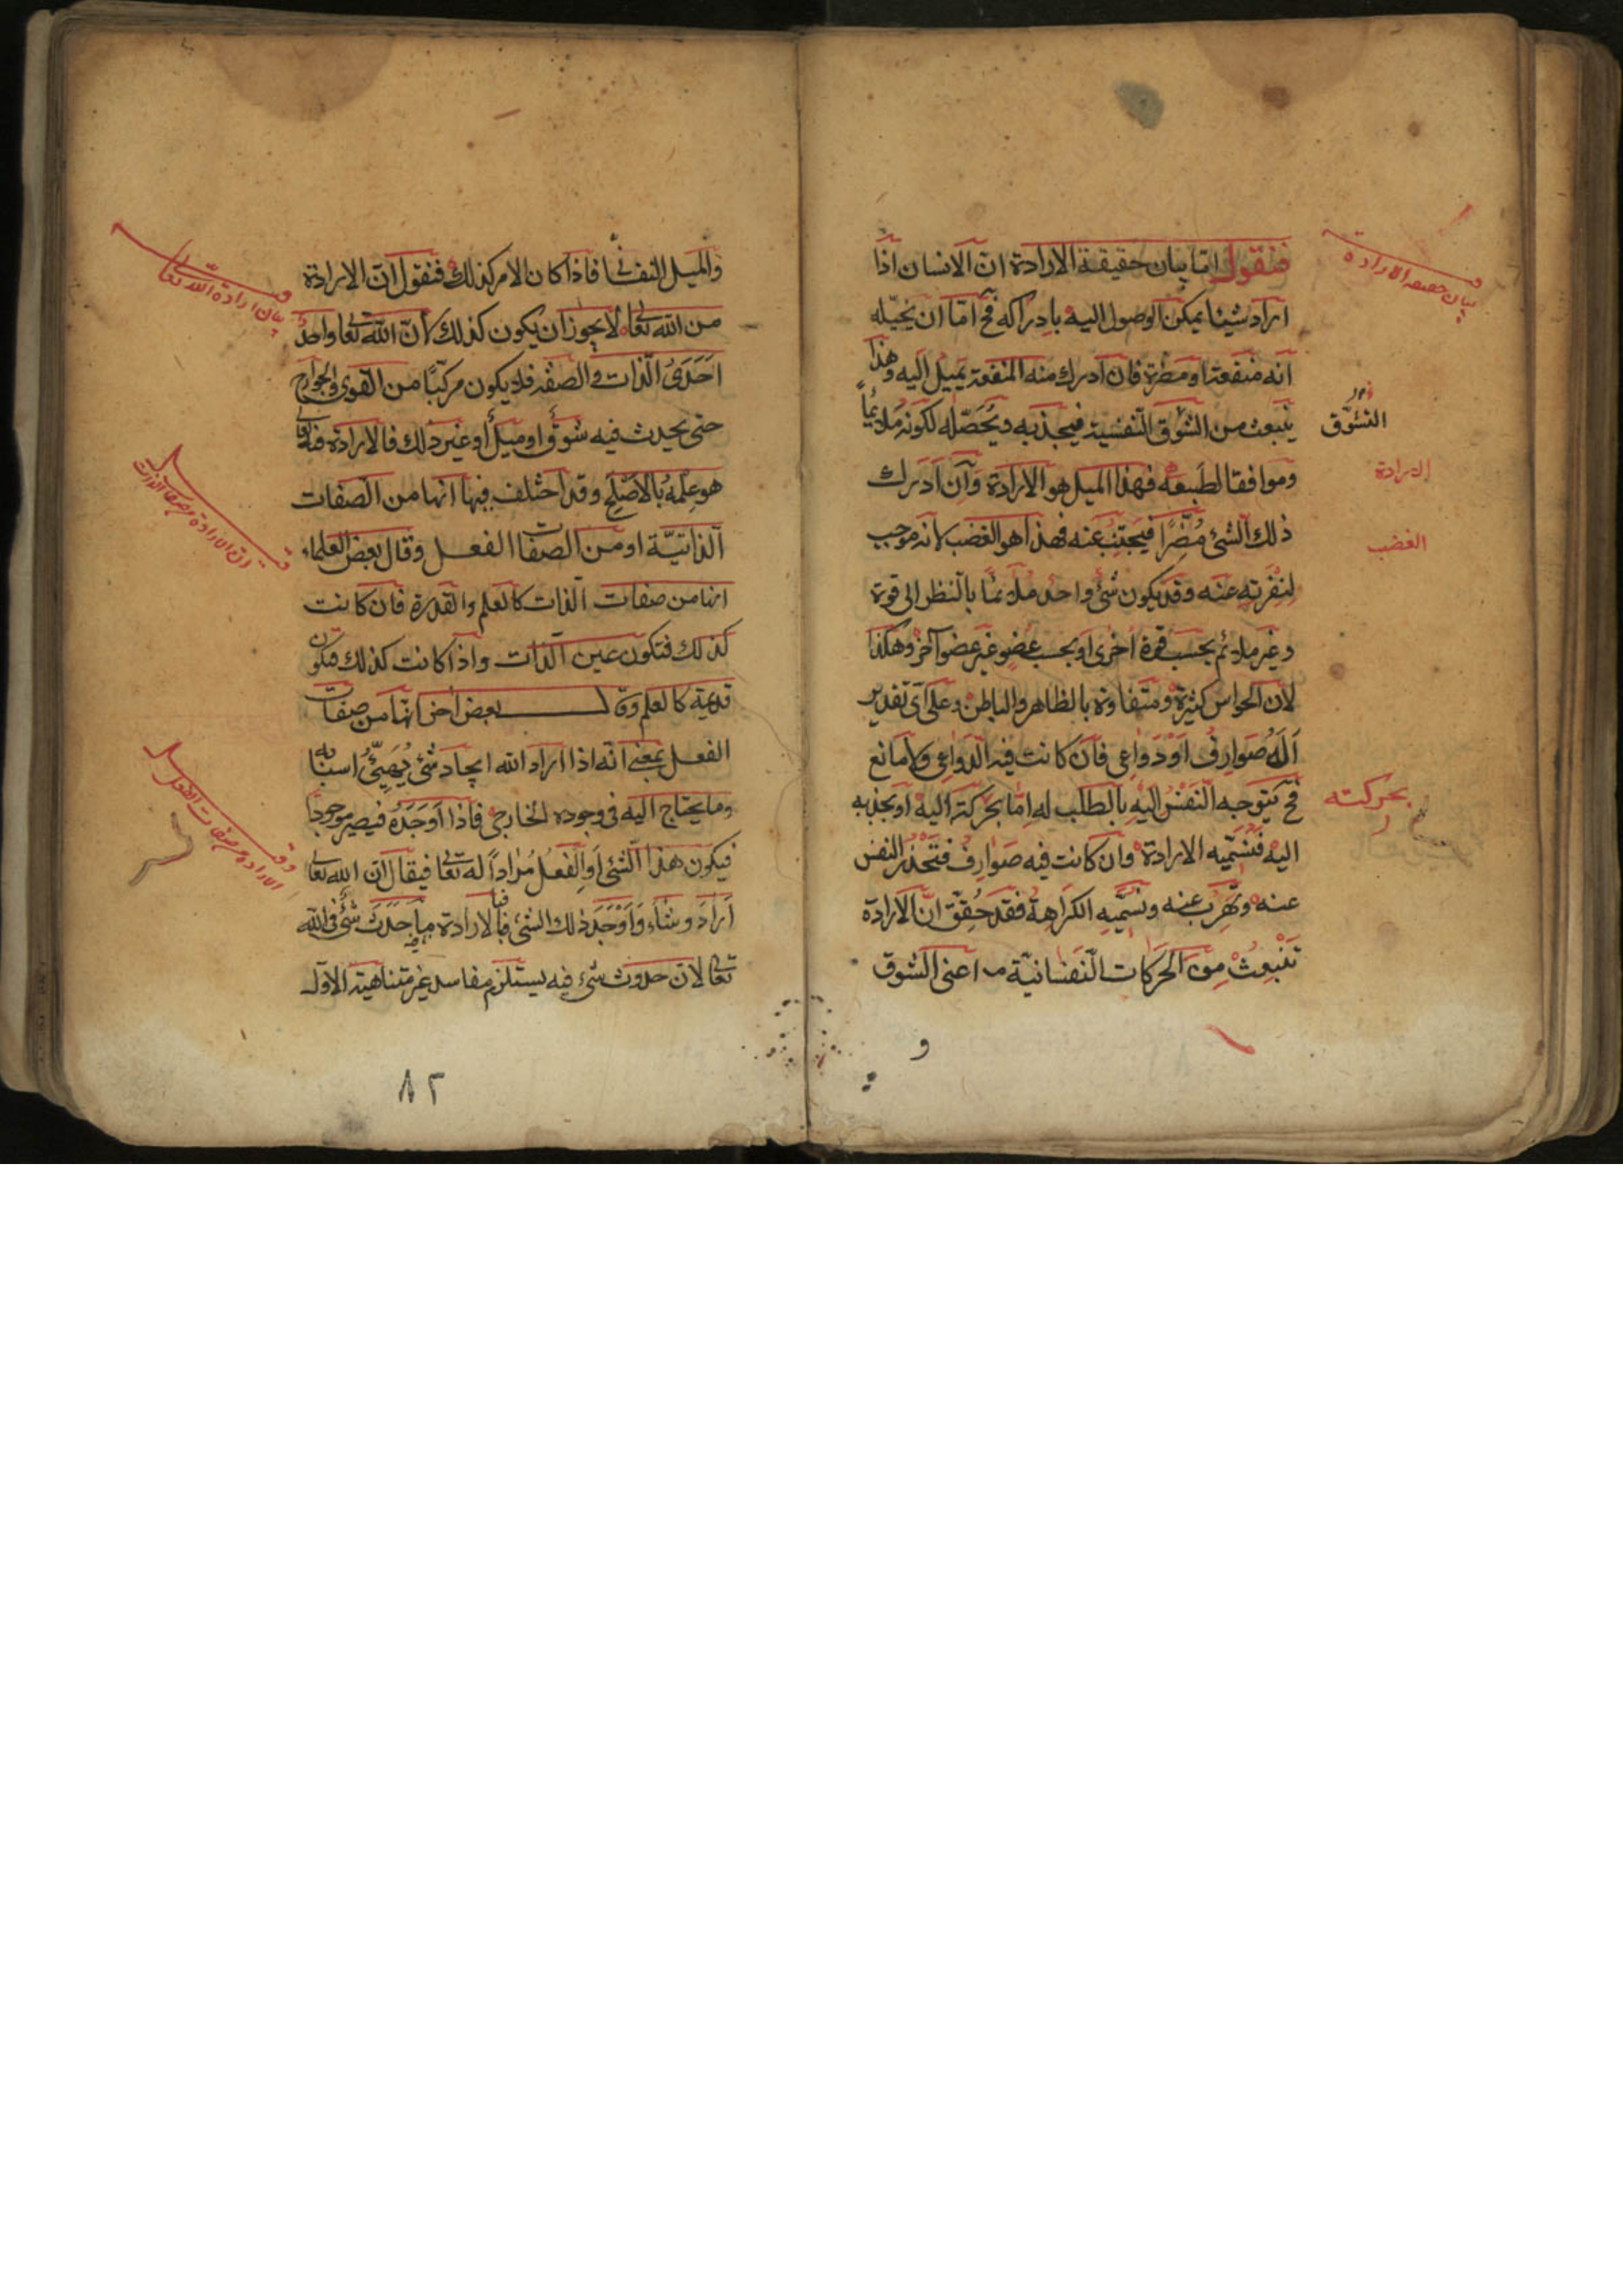 فنقول امّا بيان حقيقة الارادة انّ الانسان اذا
اراد شيئا يمكن الوصول اليه بادراكه فح امّا ان يخيّله
انه منفعة او مضرة فان ادرك منه المنفعة يميل اليه وهذا
ينبعث من الشوق النفسية فيجذبه ويُحَصّله لكونه ملائماً
وموافقا لطبعه فهذا الميل هو الارادة وان ادرك
ذلك الشئ مُضِرًا فيجتنب عنه فهذا هو الغضب لانه موجب
لنفرته عنه وقد يكون شئ واحد ملائما بالنظر الى قوة
وغير ملائم بحسب قوة اخرى او بحسب عضو غير عضو آخر وهكذا
لان الحواس كثيرة ومتفاوتة بالظاهر والباطن وعلى اى تقدير
اَلَهُ صوارف اَوْ دَواعى فان كانت فيه الدواعى ولا مانع
فح يتوجه النفسُ اليه بالطلب له امّا بحركة اليه او بجذبه
اليه فنسمّيه الارادة وان كانت فيه صوارف فتحذر النفس
عنه وتهرب عنه ونسمّيه الكراهة فقد حُقِّق انّ الارادة
تنبعث من الحركات النفسانيّة اعنى الشوق
بيان حقيقة الارادة
التشوّق
الارادة
الغضب
بحركته
و
والميل النفسانى فاذا كان الامر كذلك فنقول انّ الارادة
من الله تعالى لا يجوز ان يكون كذلك لانّ الله تعالى واحدٌ
اَحَدىُّ الذات والصفة فلا يكون مركبًا من القوى والجوارح
حتى يحدث فيه شوق او ميل او غير ذلك فالارادة فيه تعالى
هو عِلمُه بالاصلح وقد اختلف فيها انها من الصفات
الذاتيّة او من الصفات الفعل وقال بعض العلماء
انها من صفات الذات كالعلم والقدرة فان كانت
كذلك فتكون عين الذات واذا كانت كذلك فتكون
قديمة كالعلم وقال بعض اخر انّها من صفات
الفعل بمعنى انّه اذا اراد الله ايجاد شئ يُهَيِّئُ اسبابه
وما يحتاج اليه فى وجوده الخارجى فاذا اَوجَدَهُ فيصير موجودًا
فيكون هذا الشئ او الفعلُ مُراداً له تعالى فيقال انّ الله تعالى
اَرادَ وشاء وَاَوْجَدَ ذلك الشئ فبالارادة ما حدث شئ فى الله
تعالى لان حدوث شىء فيه يستلزم مفاسد غير متناهية الاوّل
بيان ارادة الله تعالى
فى انّ الارادة من صفات الذات
الارادة من صفات الفعل
٨٢